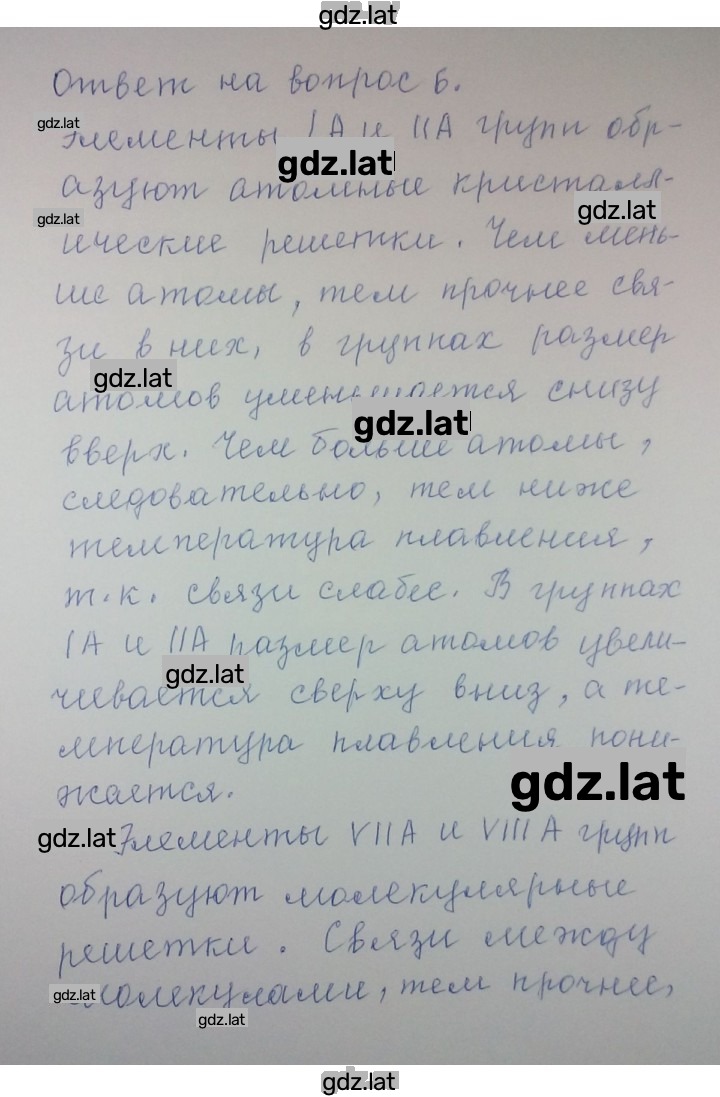 gdz.lat
Ответ на вопрос 6.
gdz.lat
Элементы IA и IIA групп обр-
gdz.lat
азуют атомные кристалл-
gdz.lat
gdz.lat
ические решетки. Чем мень-
ше атомы, тем прочнее свя-
зи в них, в группах размер
gdz.lat
атомов уменьшается снизу
gdz.lat
вверх. Чем больше атомы,
следовательно, тем ниже
температура плавления,
т.к. связи слабее. В группах
IA и IIA размер атомов увели-
gdz.lat
чивается сверху вниз, а те-
мпература плавления пони-
gdz.lat
жается.
gdz.lat
Элементы VIIA и VIIIA групп
образуют молекулярные
решетки. Связи между
gdz.lat
молекулами, тем прочнее,
gdz.lat
gdz.lat